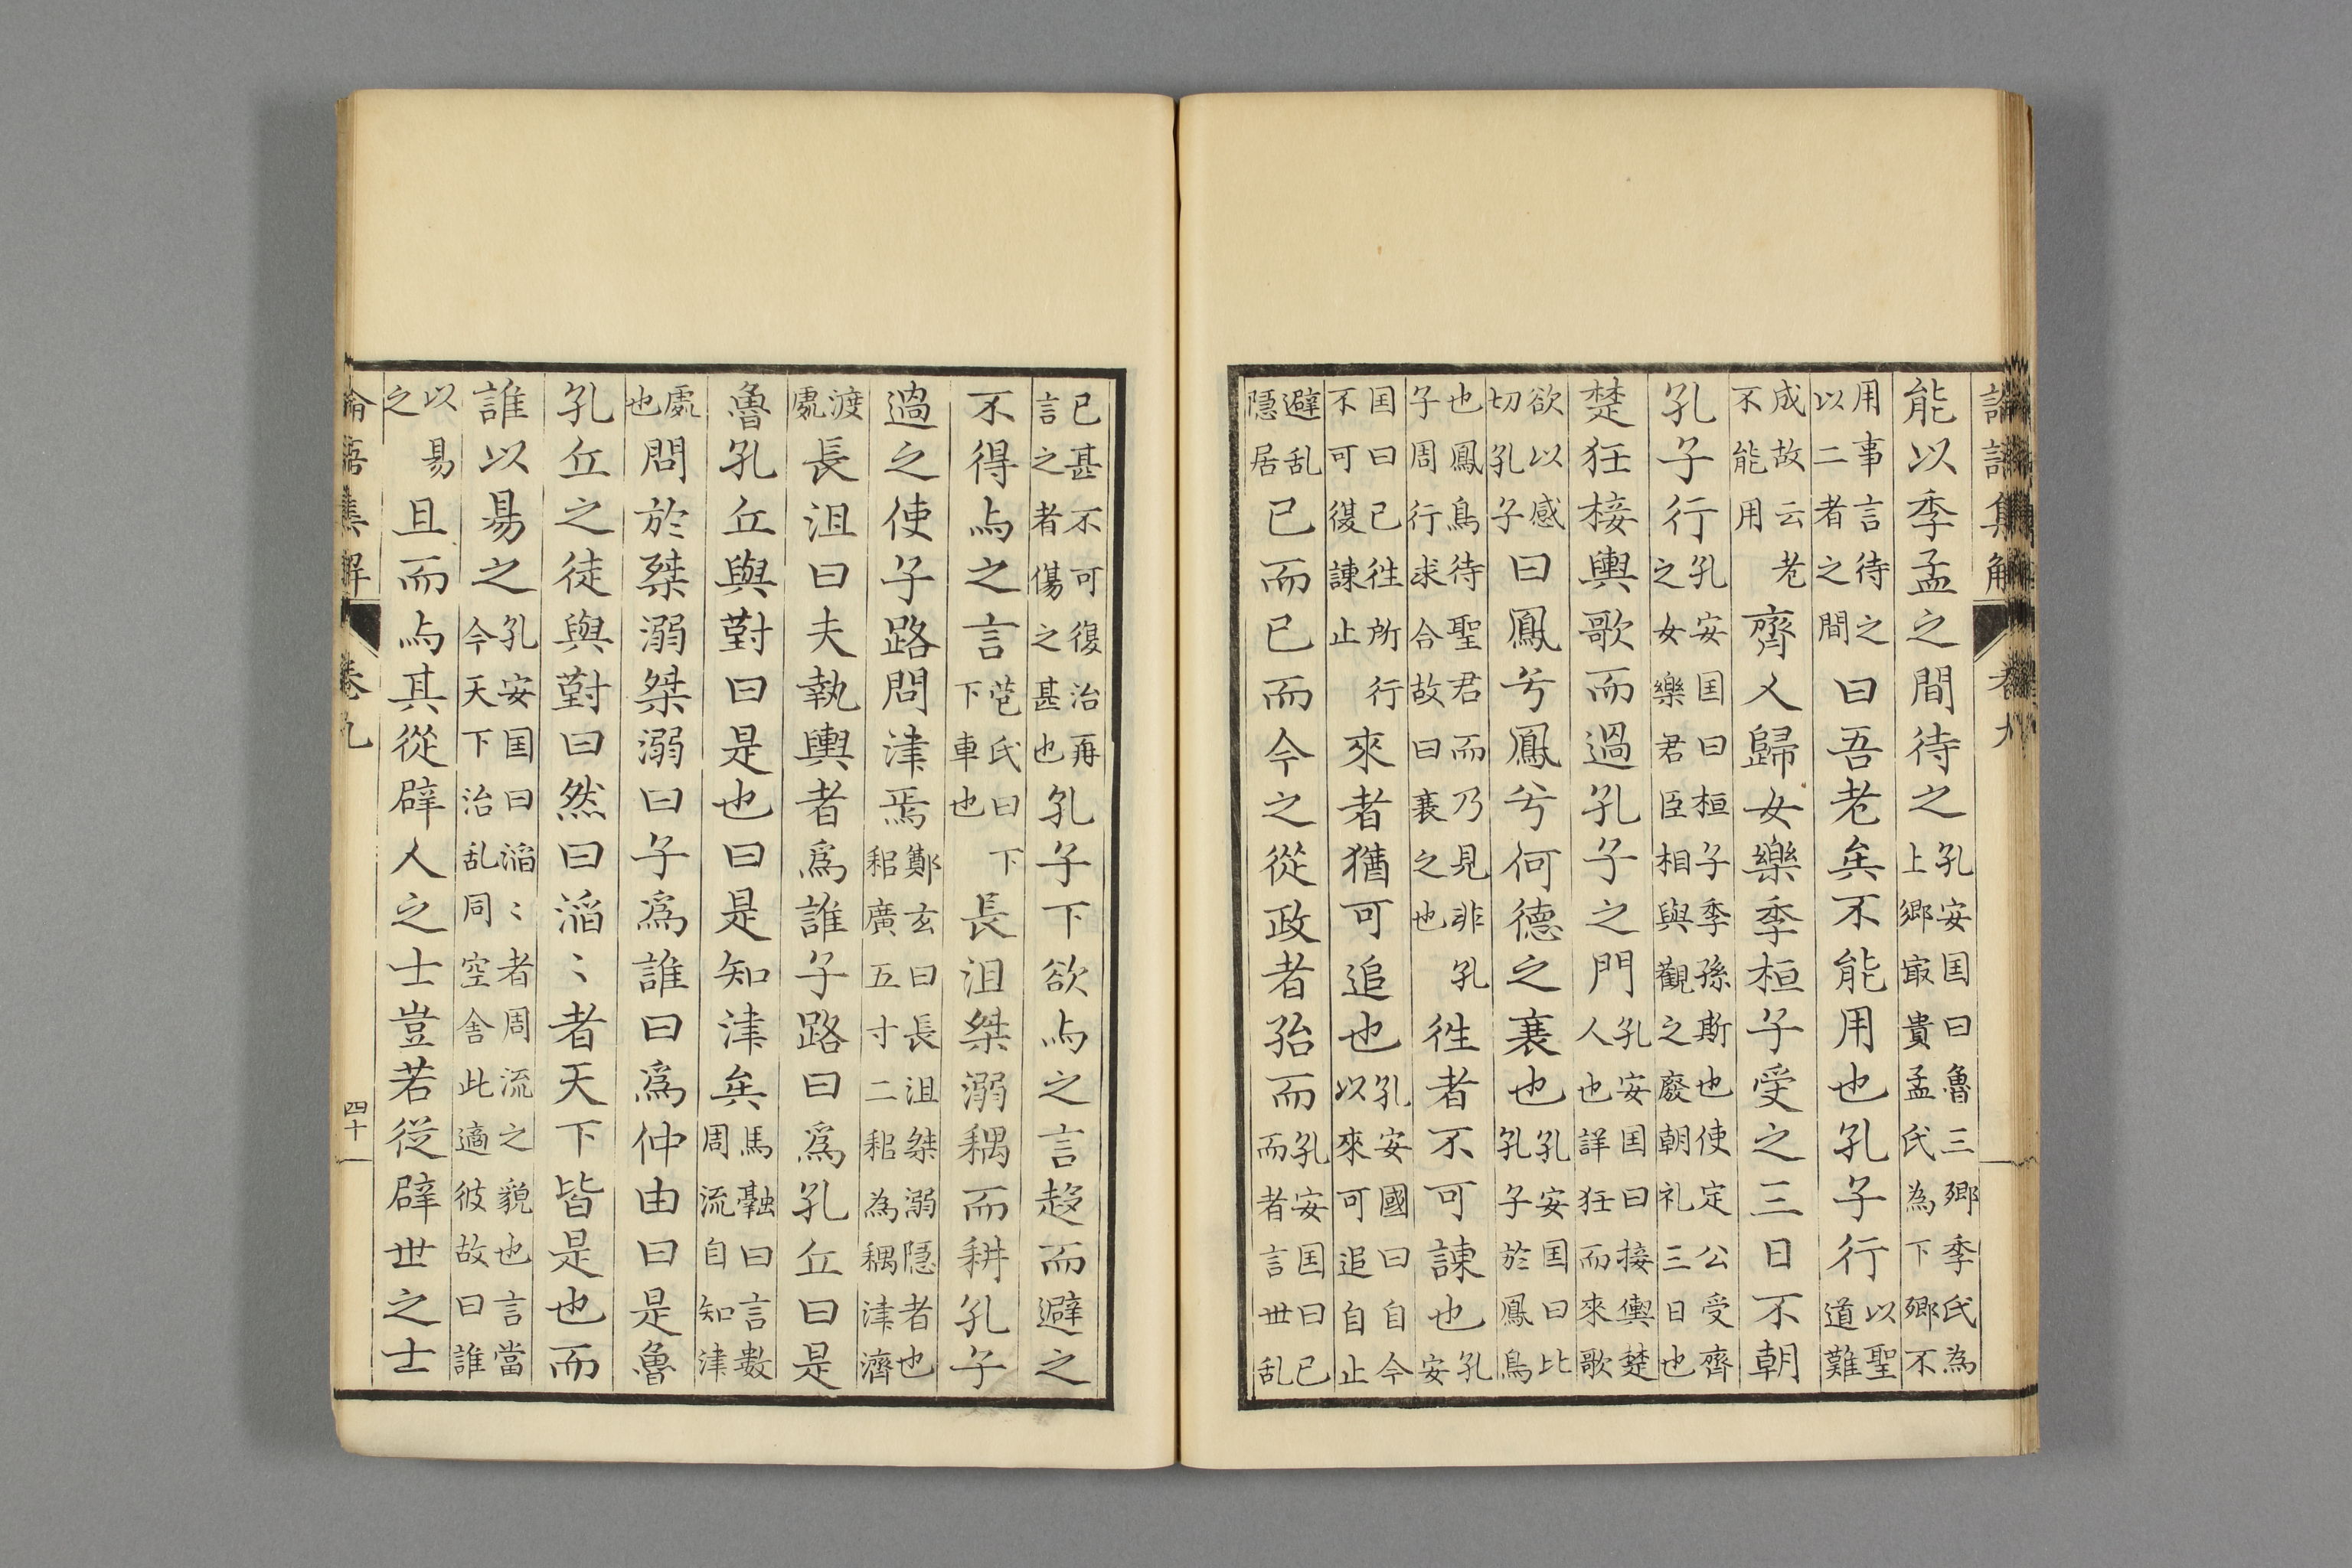 能以季孟之間待之孔安囯曰魯三卿季氏為上卿㝡貴孟氏為下卿不
用事言待之以二者之間曰吾老矣不能用也孔子行以聖道難
成故云老不能用齊人歸女樂季桓子受之三日不朝
孔子行孔安囯曰桓子季孫斯也使定公受齊之女樂君臣相與觀之廢朝礼三日也
楚狂接輿歌而過孔子之門孔安囯曰接輿楚人也詳狂而來歌
欲以感切孔子曰鳳兮鳳兮何德之衰也孔安囯曰比孔子於鳳鳥
也鳳鳥待聖君而乃見非孔子周行求合故曰衰之也徃者不可諌也孔安
囯曰已徃所行不可復諌止來者猶可追也孔安國曰自今以來可追自止
避乱隠居已而已而今之從政者殆而孔安囯曰已而者言世乱
已甚不可復治再言之者傷之甚也孔子下欲与之言趍而避之
不得与之言苞氏曰下下車也長沮桀溺耦而耕孔子
過之使子路問津焉鄭玄曰長沮桀溺隠者也耜廣五寸二耜為耦津濟
渡處長沮曰夫執輿者爲誰子路曰爲孔丘曰是
魯孔丘與對曰是也曰是知津矣馬融曰言數周流自知津
處也問於桀溺桀溺曰子爲誰曰爲仲由曰是魯
孔丘之徒與對曰然曰滔〻者天下皆是也而
誰以易之孔安囯曰滔〻者周流之貌也言當今天下治乱同空舎此適彼故曰誰
以易之且而与其從辟人之士豈若從辟世之士
論語集解 卷九 四十一